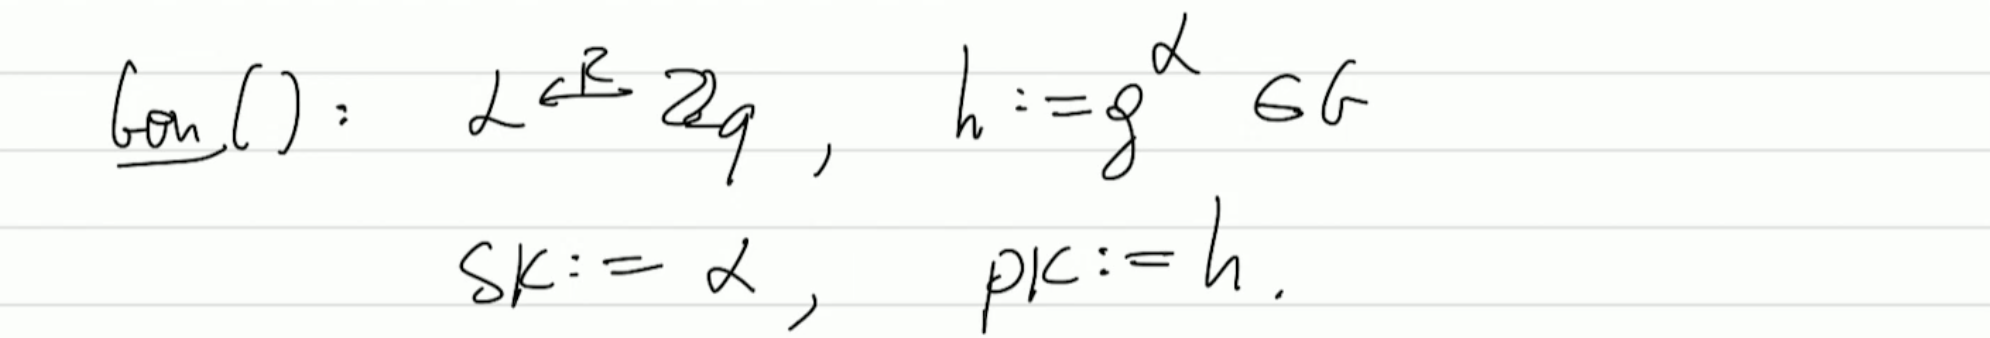 Gen(): α ←R ℤq, h := g^α ∈ G
sk := α, pk := h.